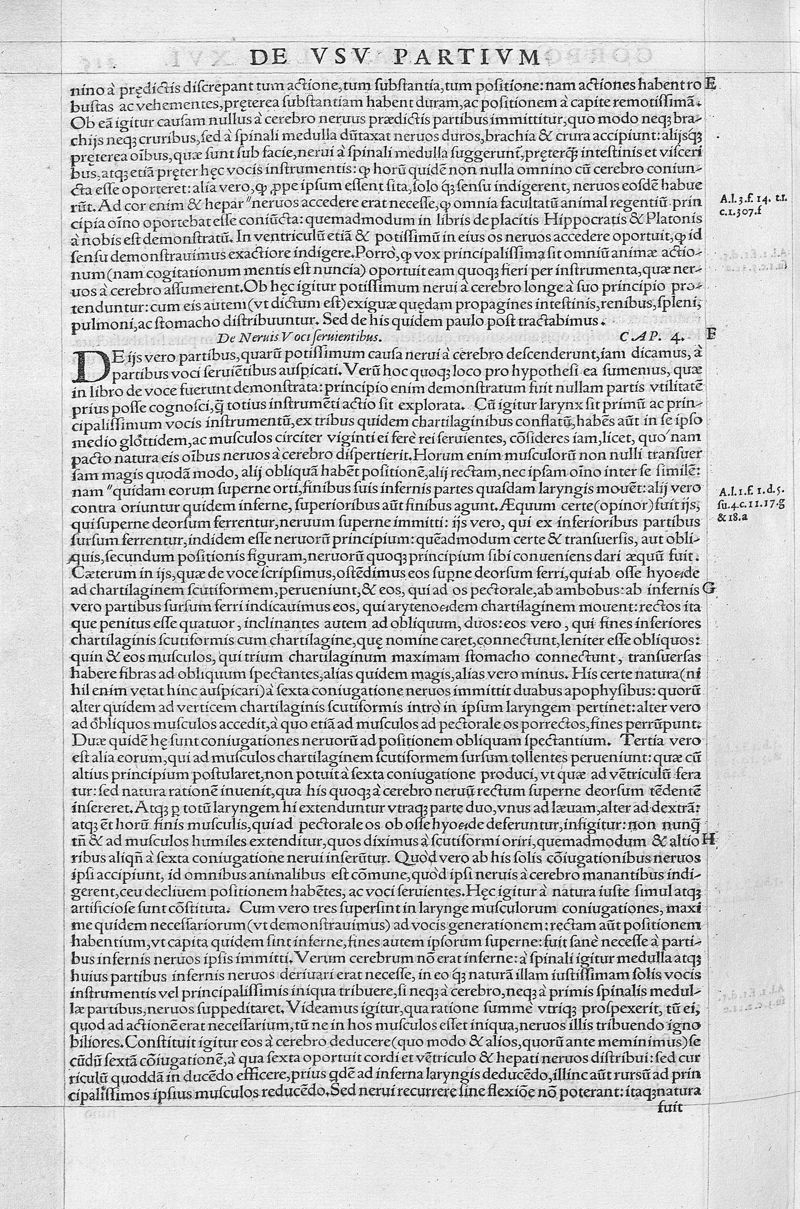 DE VSV PARTIVM
nino à prędictis discrepant tum actione, tum substantia, tum positione: nam actiones habent ro E
bustas ac vehementes, pręterea substantiam habent duram, ac positionem à capite remotissimã.
Ob eã igitur causam nullus à cerebro neruus prædictis partibus immittitur, quo modo neqꝫ bra-
chijs neqꝫ cruribus, sed à spinali medulla dũtaxat neruos duros, brachia & crura accipiunt: alijsqꝫ
pręterea oĩbus, quæ sunt sub facie, nerui à spinali medulla suggerunt, pręterq̃ꝫ intestinis et visceri
bus, atqꝫ etiã pręter hęc vocis instrumentis: ꝙ horũ quidẽ non nulla omnino cũ cerebro coniun-
cta esse oporteret: alia vero, ꝙ ꝓpe ipsum essent sita, solo q̃ꝫ sensu indigerent, neruos eosdẽ habue
rũt. Ad cor enim & hepar "neruos accedere erat necesse, ꝙ omnia facultatũ animal regentiũ prin
A.l.3.f. 14. t.r.
c.1.307.f
cipia oĩno oportebat esse coniũcta: quemadmodum in libris de placitis Hippocratis & Platonis
à nobis est demonstratũ. In ventriculũ etiã & potissimũ in eius os neruos accedere oportuit, ꝙ id
sensu demonstrauimus exactiore indigere. Porro, ꝙ vox principalissima sit omniũ animæ actio-
num (nam cogitationum mentis est nuncia) oportuit eam quoqꝫ fieri per instrumenta, quæ ner-
uos à cerebro assumerent. Ob hęc igitur potissimum nerui à cerebro longe à suo principio pro-
tenduntur: cum eis autem (vt dictum est) exiguæ quędam propagines intestinis, renibus, spleni,
pulmoni, ac stomacho distribuuntur. Sed de his quidem paulo post tractabimus.
De Neruis Voci seruientibus. CAP. 4. F
DE ijs vero partibus, quarũ potissimum causa nerui à cerebro descenderunt, iam dicamus, à
partibus voci seruiẽtibus auspicati. Verũ hoc quoqꝫ loco pro hypothesi ea sumenius, quæ
in libro de voce fuerunt demonstrata: principio enim demonstratum fuit nullam partis vtilitatẽ
prius posse cognosci, q̃ totius instrumẽti actio sit explorata. Cũ igitur larynx sit primũ ac prin-
cipalissimum vocis instrumentũ, ex tribus quidem chartilaginibus conflatũ, habẽs aũt in se ipso
medio glottidem, ac musculos circiter viginti ei fere rei seruientes, cõsideres iam, licet, quo nam
pacto natura eis oĩbus neruos à cerebro dispertierit. Horum enim musculorũ non nulli transuer
sam magis quodã modo, alij obliquã habẽt positionẽ, alij rectam, nec ipsam oĩno inter se similẽ:
nam "quidam eorum superne orti, finibus suis infernis partes quasdam laryngis mouẽt: alij vero
A.l.1.f. 1.d.5.
su.4.c.11.17.g
& 18.a
contra oriuntur quidem inferne, superioribus aũt finibus agunt. Æquum certe (opinor) fuit ijs,
qui superne deorsum ferrentur, neruum superne immitti: ijs vero, qui ex inferioribus partibus
sursum ferrentur, indidem esse neruorũ principium: quẽadmodum certe & transuersis, aut obli-
quis, secundum positionis figuram, neruorũ quoqꝫ principium sibi conueniens dari æquũ fuit.
Cæterum in ijs, quæ de voce scripsimus, ostẽdimus eos supne deorsum ferri, qui ab osse hyoeide
ad chartilaginem scutiformem, perueniunt, & eos, qui ad os pectorale, ab ambobus: ab infernis G
vero partibus sursum ferri indicauimus eos, qui arytenoeidem chartilaginem mouent: rectos ita
que penitus esse quatuor, inclinantes autem ad obliquum, duos: eos vero, qui fines inferiores
chartilaginis scutiformis cum chartilagine, quę nomine caret, connectunt, leniter esse obliquos:
quin & eos musculos, qui trium chartilaginum maximam stomacho connectunt, transuersas
habere fibras ad obliquum spectantes, alias quidem magis, alias vero minus. His certe natura (ni
hil enim vetat hinc auspicari) à sexta coniugatione neruos immittit duabus apophysibus: quorũ
alter quidem ad verticem chartilaginis scutiformis intro in ipsum laryngem pertinet: alter vero
ad obliquos musculos accedit, à quo etiã ad musculos ad pectorale os porrectos, fines perrũpunt.
Duæ quidẽ hę sunt coniugationes neruorũ ad positionem obliquam spectantium. Tertia vero
est alia eorum, qui ad musculos chartilaginem scutiformem sursum tollentes perueniunt: quæ cũ
altius principium postularet, non potuit à sexta coniugatione produci, vt quæ ad vẽtriculũ fera
tur: sed natura rationẽ inuenit, qua his quoqꝫ à cerebro neruũ rectum superne deorsum tẽdentẽ
insereret. Atqꝫ ꝑ totũ laryngem hi extenduntur vtraqꝫ parte duo, vnus ad læuam, alter ad dextrã:
atqꝫ ẽt horũ finis musculis, qui ad pectorale os ob osse hyoeide deferuntur, infigitur: non nunq̃
tñ & ad musculos humiles extenditur, quos diximus à scutiformi oriri, quemadmodum & altio H
ribus aliqñ à sexta coniugatione nerui inserũtur. Quod vero ab his solis cõiugationibus neruos
ipsi accipiunt, id omnibus animalibus est cõmune, quod ipsi neruis à cerebro manantibus indi-
gerent, ceu decliuem positionem habẽtes, ac voci seruientes. Hęc igitur à natura iuste simul atqꝫ
artificiose sunt cõstituta. Cum vero tres supersint in larynge musculorum coniugationes, maxi
me quidem necessariorum (vt demonstrauimus) ad vocis generationem: rectam aũt positionem
habentium, vt capita quidem sint inferne, fines autem ipsorum superne: fuit sanè necesse à parti-
bus infernis neruos ipsis immitti. Verum cerebrum nõ erat inferne: à spinali igitur medulla atqꝫ
huius partibus infernis neruos deriuari erat necesse, in eo q̃ꝫ naturã illam iustissimam solis vocis
instrumentis vel principalissimis iniqua tribuere, si neqꝫ à cerebro, neqꝫ à primis spinalis medul-
læ partibus, neruos suppeditaret. Videamus igitur, qua ratione summe vtriqꝫ prospexerit, tũ ei,
quod ad actionẽ erat necessarium, tũ ne in hos musculos esset iniqua, neruos illis tribuendo igno
biliores. Constituit igitur eos à cerebro deducere (quo modo & alios, quorũ ante meminimus) se
cũdũ sextã cõiugationẽ, à qua sexta oportuit cordi et vẽtriculo & hepati neruos distribui: sed cur
riculũ quoddã in ducẽdo efficere, prius qdẽ ad inferna laryngis deducẽdo, illinc aũt rursũ ad prin
cipalissimos ipsius musculos reducẽdo. Sed nerui recurrere sine flexiõe nõ poterant: itaqꝫ natura
fuit